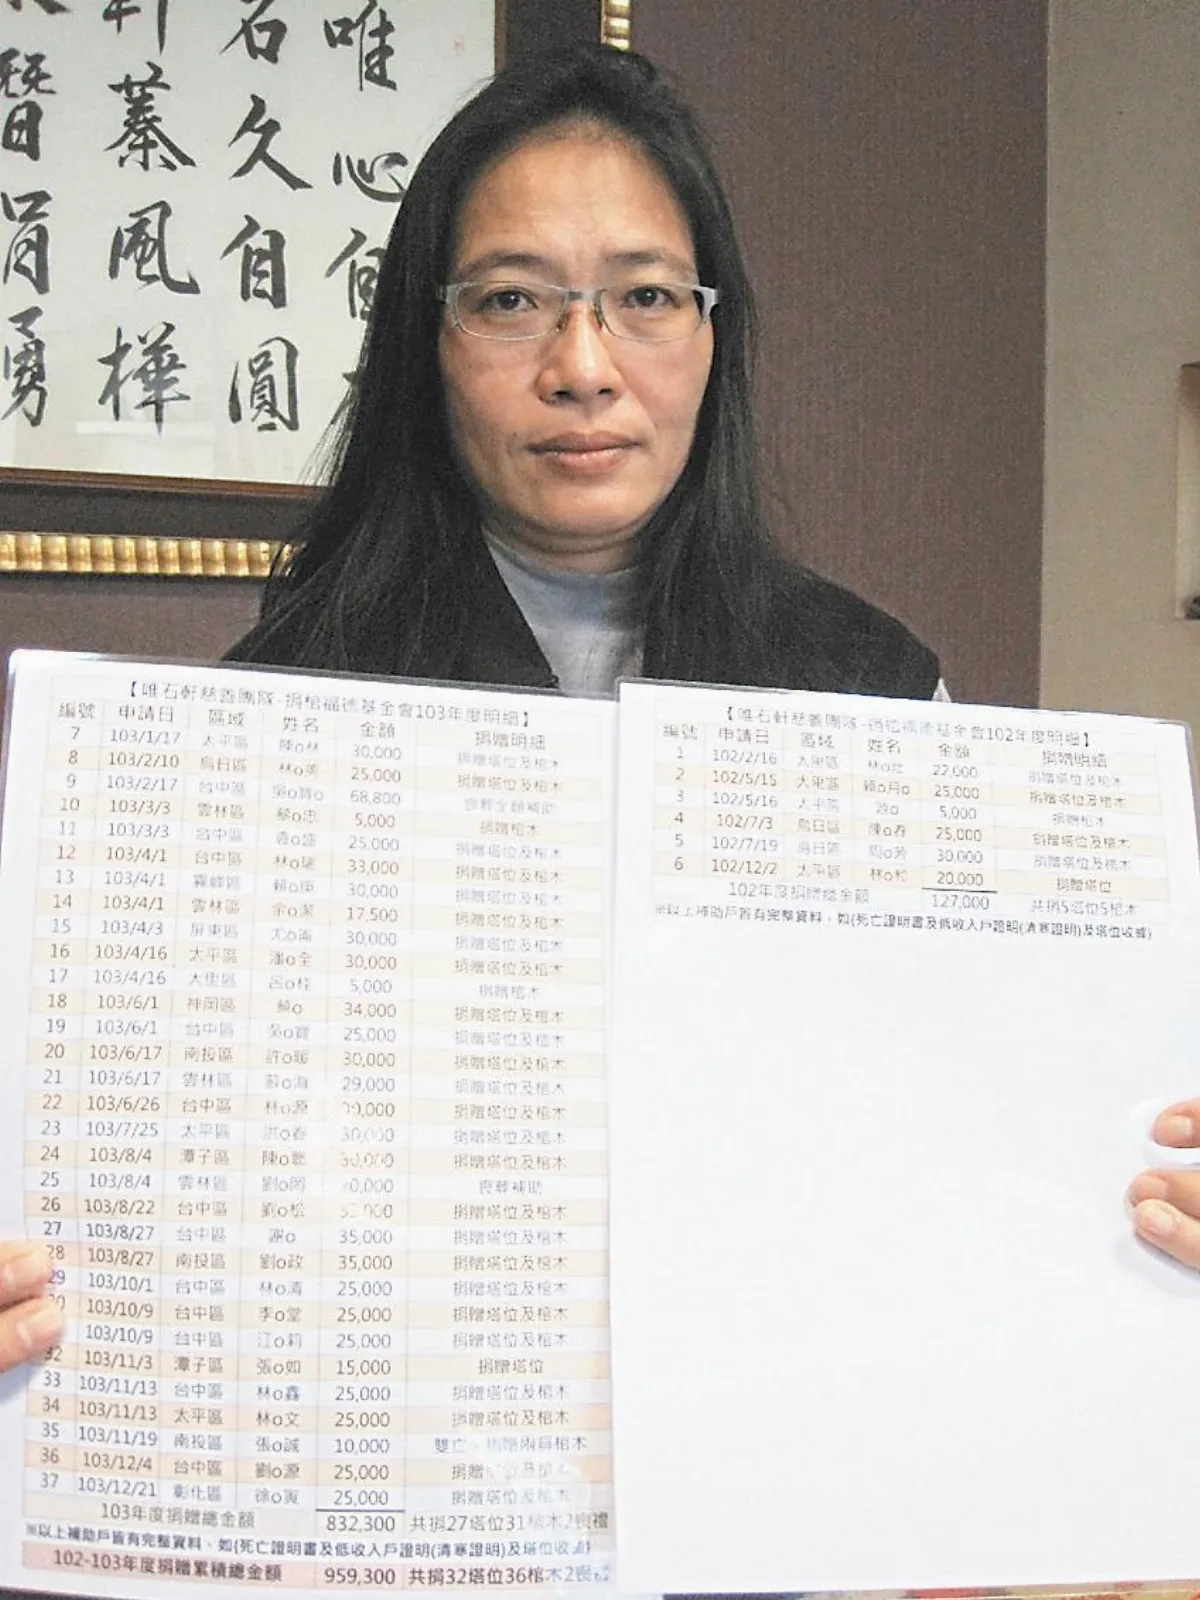 唯心
石久自圓
軒蓁風樺
勇
【唯石軒慈善團隊-捐棺福德基金會103年度明細】
編號 申請日 區域 姓名 金額 捐贈明細
7 103/1/17 太平區 陳o林 30,000 捐贈塔位及棺木
8 103/2/10 烏日區 林o美 25,000 捐贈塔位及棺木
9 103/2/17 台中區 68,800 喪葬全額補助
10 103/3/3 雲林區 蔡o忠 5,000 捐贈棺木
11 103/3/3 台中區 袁o盛 25,000 捐贈塔位及棺木
12 103/4/1 台中區 林o瑞 33,000 捐贈塔位及棺木
13 103/4/1 霧峰區 賴o英 30,000 捐贈塔位及棺木
14 103/4/1 雲林區 余o潔 17,500 捐贈塔位及棺木
15 103/4/3 屏東區 尤o南 30,000 捐贈塔位及棺木
16 103/4/16 太平區 潘o全 30,000 捐贈塔位及棺木
17 103/4/16 大里區 呂o桂 5,000 捐贈棺木
18 103/6/1 神岡區 賴o 34,000 捐贈塔位及棺木
19 103/6/1 台中區 吳o寶 25,000 捐贈塔位及棺木
20 103/6/17 南投區 許o暖 30,000 捐贈塔位及棺木
21 103/6/17 雲林區 蘇o海 29,000 捐贈塔位及棺木
22 103/6/26 台中區 林o源 捐贈塔位及棺木
23 103/7/25 太平區 洪o春 30,000 捐贈塔位及棺木
24 103/8/4 潭子區 陳o聰 30,000 捐贈塔位及棺木
25 103/8/4 雲林區 劉o岡 喪葬補助
26 103/8/22 台中區 劉o松 捐贈塔位及棺木
27 103/8/27 台中區 謝o 35,000 捐贈塔位及棺木
28 103/8/27 南投區 劉o政 35,000 捐贈塔位及棺木
29 103/10/1 台中區 林o清 25,000 捐贈塔位及棺木
103/10/9 台中區 李o堂 25,000 捐贈塔位及棺木
103/10/9 台中區 江o莉 25,000 捐贈塔位及棺木
32 103/11/3 潭子區 張o如 15,000 捐贈塔位
33 103/11/13 台中區 林o鑫 25,000 捐贈塔位及棺木
34 103/11/13 太平區 林o文 25,000 捐贈塔位及棺木
35 103/11/19 南投區 張o誠 10,000 雙亡、捐贈兩具棺木
36 103/12/4 台中區 劉o源 25,000 捐贈塔位及棺木
37 103/12/21 彰化區 徐o寅 25,000 捐贈塔位及棺木
103年度捐贈總金額 832,300 共捐27塔位31棺木2喪禮
※以上補助戶皆有完整資料，如(死亡證明書及低收入戶證明(清寒證明)及塔位收據)
102-103年度捐贈累積總金額 959,300 共捐32塔位36棺木2喪禮
【唯石軒慈善團隊-捐棺福德基金會102年度明細】
編號 申請日 區域 姓名 金額 捐贈明細
1 102/2/16 大里區 22,000 捐贈塔位及棺木
2 102/5/15 大里區 賴o月o 25,000 捐贈塔位及棺木
3 102/5/16 太平區 5,000 捐贈棺木
4 102/7/3 烏日區 陳o春 25,000 捐贈塔位及棺木
5 102/7/19 烏日區 30,000 捐贈塔位及棺木
6 102/12/2 太平區 林o松 20,000 捐贈塔位
102年度捐贈總金額 127,000 共捐5塔位5棺木
※以上補助戶皆有完整資料，如(死亡證明書及低收入戶證明(清寒證明)及塔位收據)